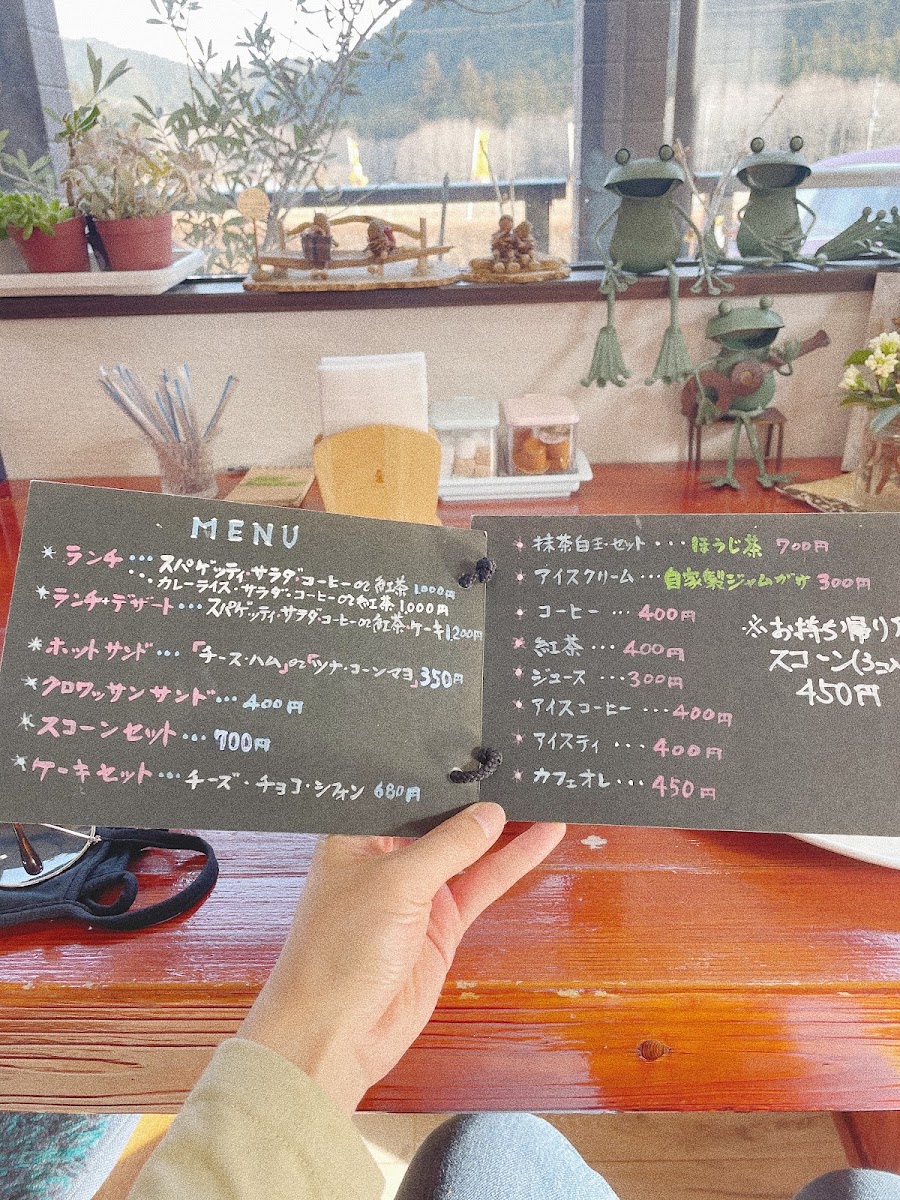 MENU
* ランチ・・・スパゲッティ・サラダ・コーヒーor紅茶 1,000円
・・・カレーライス・サラダ・コーヒーor紅茶 1,000円
* ランチ+デザート・・・スパゲッティ・サラダ・コーヒーor紅茶・ケーキ 1,200円
* ホットサンド・・・「チーズ・ハム」or「ツナ・コーンマヨ」350円
* クロワッサンサンド・・・400円
* スコーンセット・・・700円
* ケーキセット・・・チーズ・チョコ・シフォン 680円
* 抹茶白玉・セット・・・ほうじ茶 700円
* アイスクリーム・・・自家製ジャムがけ 300円
* コーヒー・・・400円
* 紅茶・・・400円
* ジュース・・・300円
* アイスコーヒー・・・400円
* アイスティ・・・400円
* カフェオレ・・・450円
※お持ち帰り
スコーン(3コ入
450円